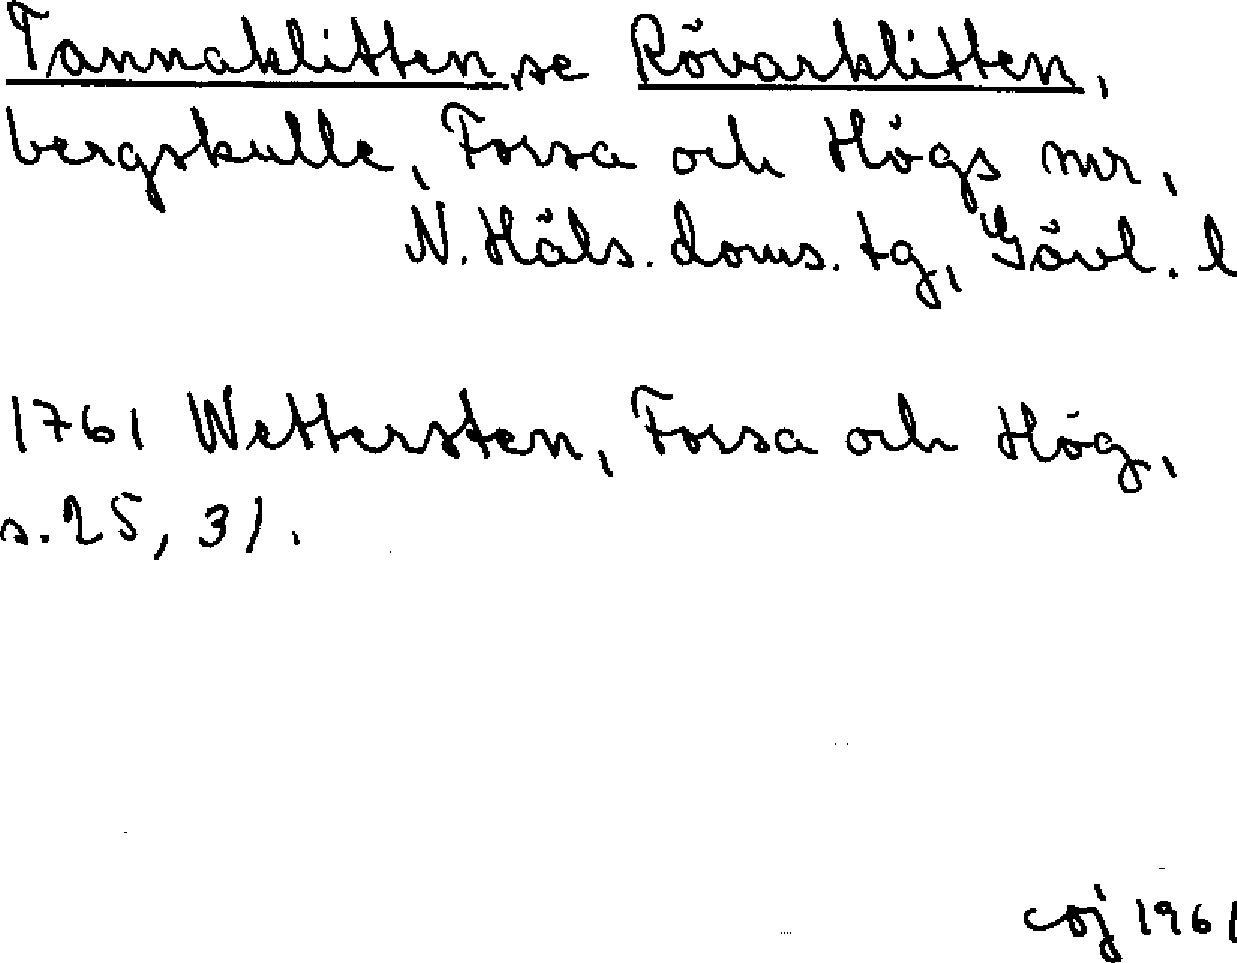 Tannaklitten, se Rövarklitten,
bergskulle, Forsa och Högs snr,
N. Häls. doms. tg, Gävl. l
1761 Wettersten, Forsa och Hög,
s. 25, 31.
coj 1961